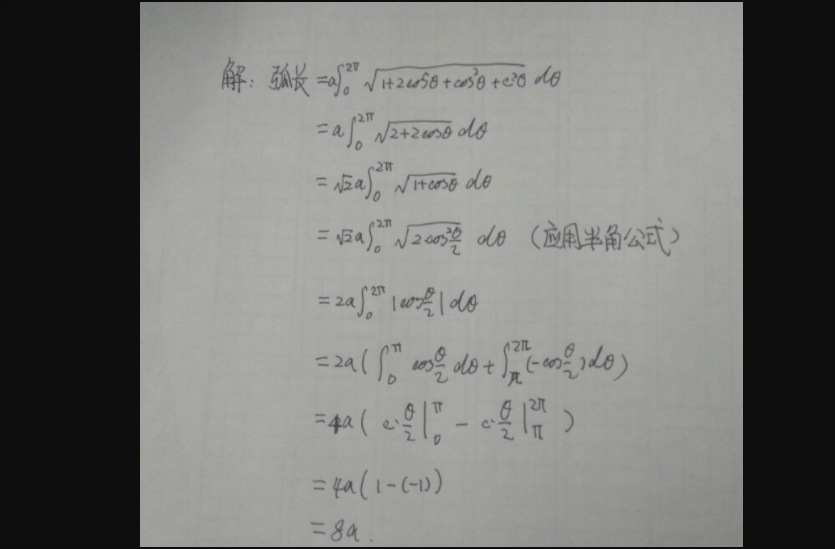 解: 弧长 = a∫₀^{2π} √(1+2cosθ+cos²θ+c²θ) dθ
= a∫₀^{2π} √(2+2cosθ) dθ
= √2a∫₀^{2π} √(1+cosθ) dθ
= √2a∫₀^{2π} √(2cos²θ/2) dθ (应用半角公式)
= 2a∫₀^{2π} |cosθ/2| dθ
= 2a(∫₀^π cosθ/2 dθ + ∫_π^{2π} (-cosθ/2) dθ)
= 4a( θ/2|₀^π - θ/2|_π^{2π} )
= 4a(1-(-1))
= 8a.